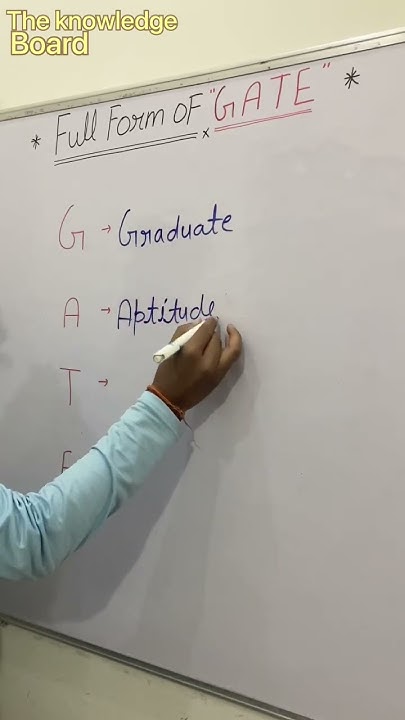 The knowledge
Board
* Full Form OF "GATE" *
G → Graduate
A → Aptitude
T →
E